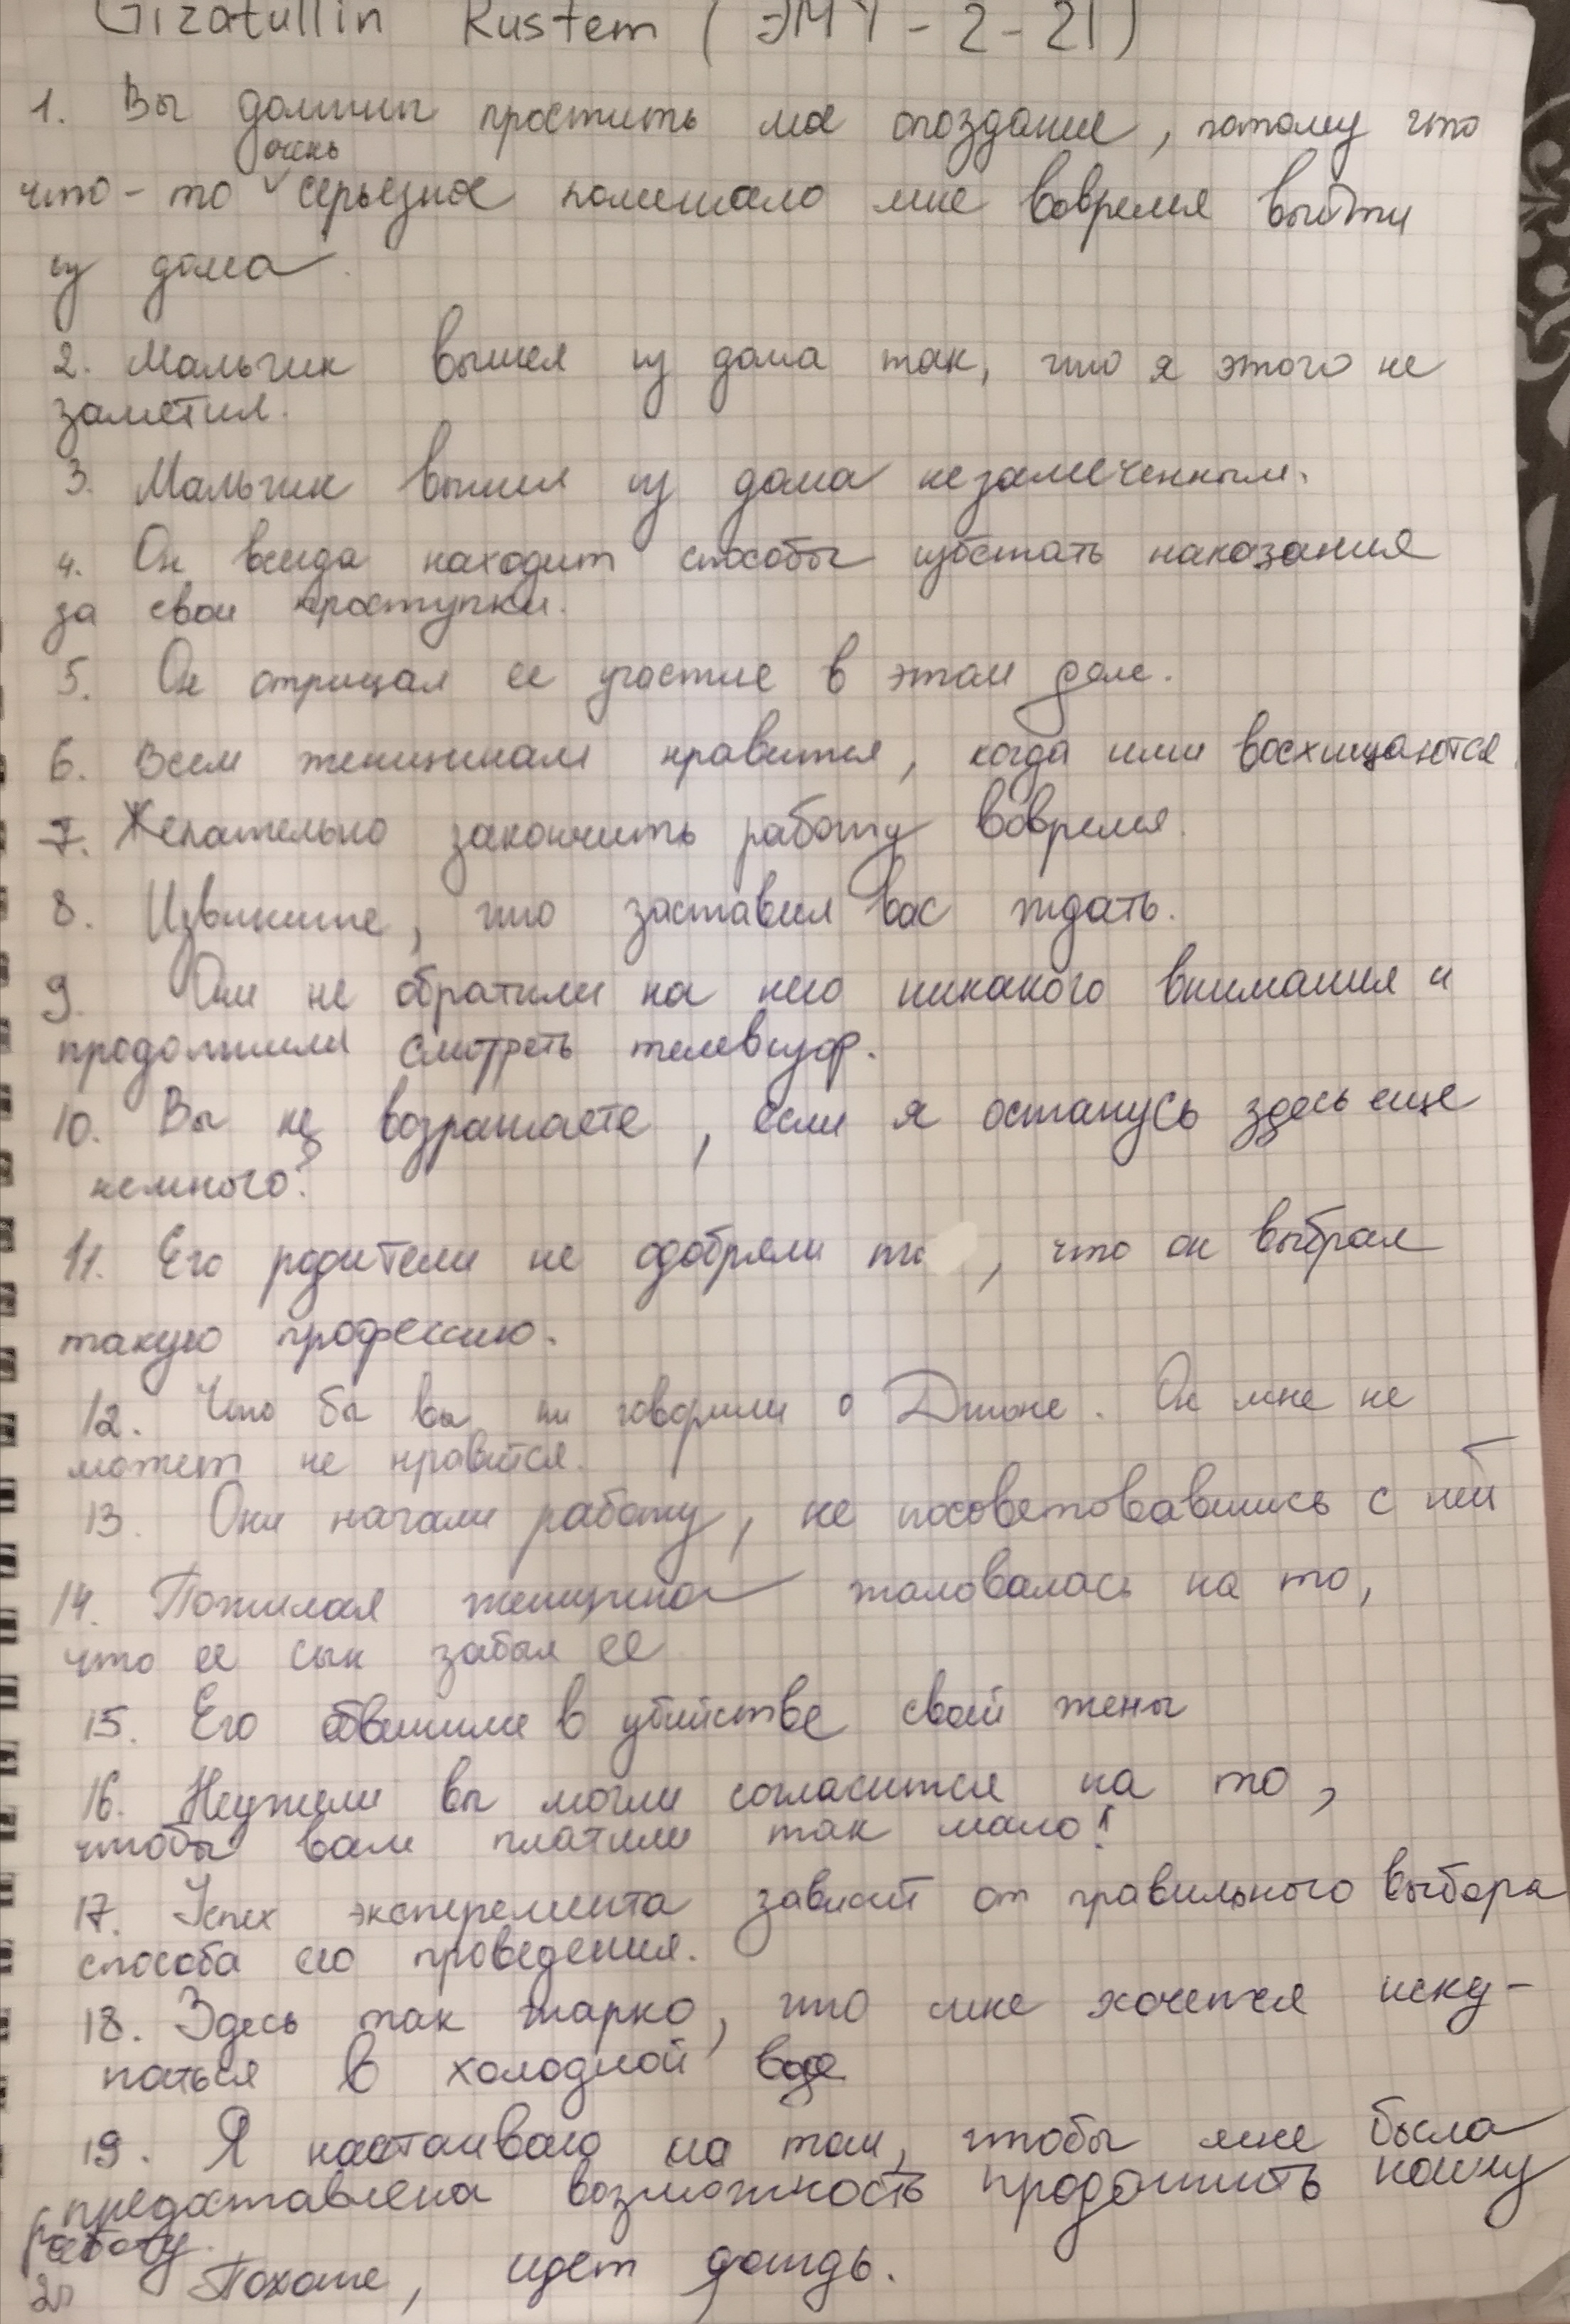 Gizatullin Rustem (ЭМТ-2-21)
1. Вы должны простить мое опоздание, потому что
очень
что-то серьезное помешало мне вовремя выйти
из дома.
2. Мальчик вышел из дома так, что я этого не
заметил.
3. Мальчик вышел из дома незамеченным.
4. Он всегда находит способы избегать наказания
за свои проступки.
5. Он отрицал ее участие в этом деле.
6. Всем женщинам нравится, когда ими восхищаются.
7. Желательно закончить работу вовремя.
8. Извините, что заставил вас ждать.
9. Они не обратили на него никакого внимания и
продолжили смотреть телевизор.
10. Вы не возражаете, если я останусь здесь еще
немного?
11. Его родители не одобряли , что он выбрал
такую профессию.
12. Что бы вы ни говорили о Джоне. Он мне не
может не нравится.
13. Они начали работу, не посоветовавшись с ней
14. Пожилая женщина жаловалась на то,
что ее сын забыл ее
15. Его обвинили в убийстве своей жены
16. Неужели вы могли согласится на то,
чтобы вам платили так мало!
17. Успех эксперемента зависит от правильного выбора
способа его проведения.
18. Здесь так жарко, что мне хочется иску-
паться в холодной воде
19. Я настаиваю на том, чтобы мне была
предоставлена возможность продолжить нашу
работу.
20 Похоже, идет дождь.